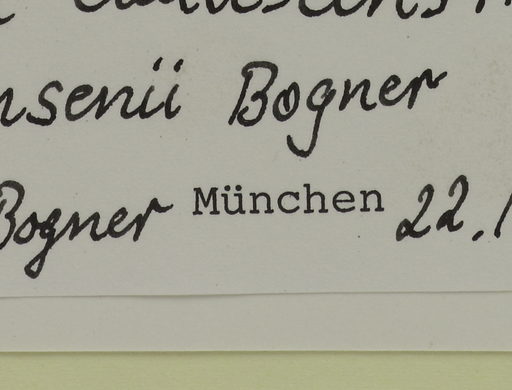 nsenii Bogner
Bogner München 22.1